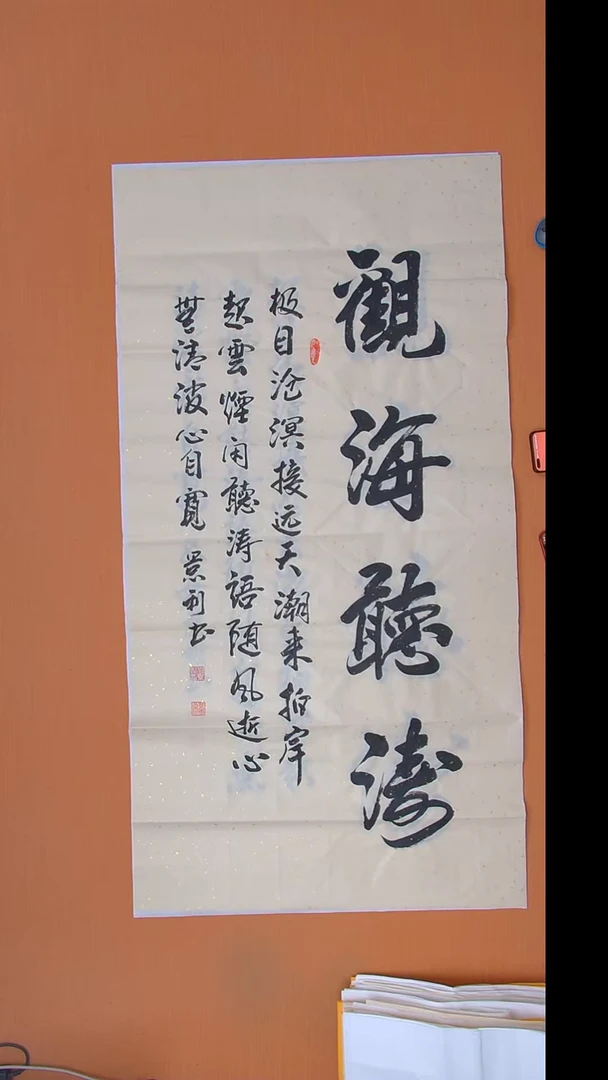 觀海聽濤
极目沧溟接远天潮来拍岸
起雲煙闲聽涛語随风逝心
譬清波心自寬 景利书